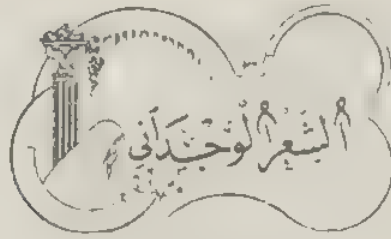 الشِّعر الوجْدَاني